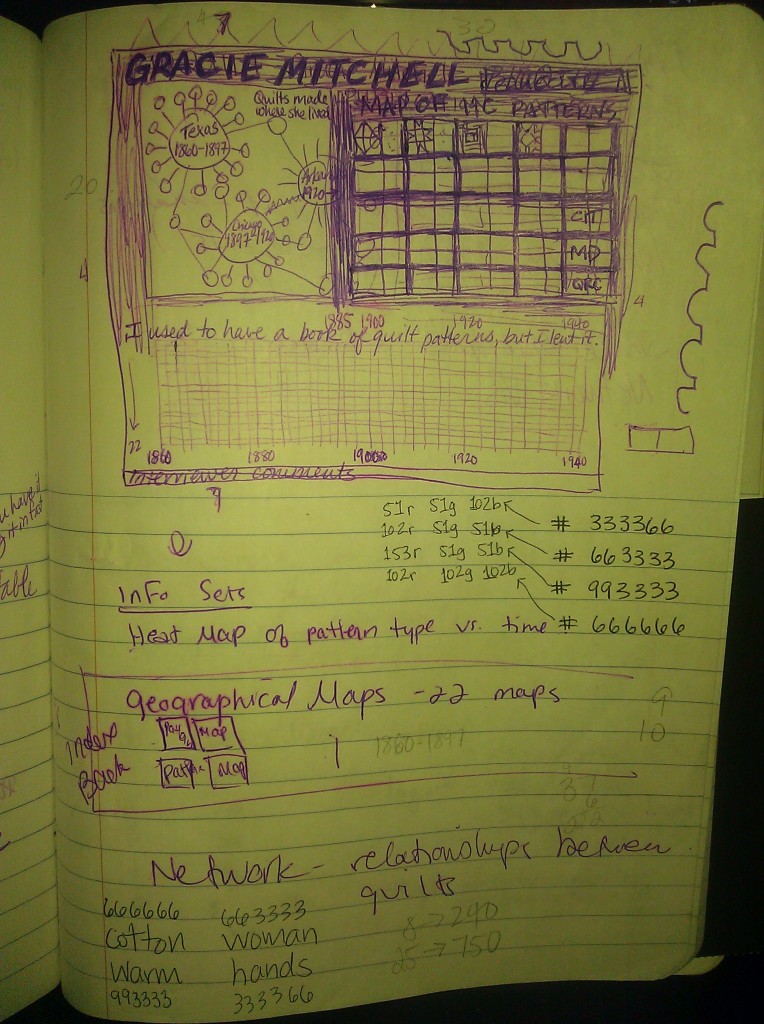 4 7
30
GRACIE MITCHELL
Quilts made where she lived
MAP OF PATTERNS
Texas
1860-1897
1920
Chicago
1897-1920
20
4
CH
MD
4
1885 1900 1920 1940
I used to have a book of quilt patterns, but I lent it.
22
1860 1880 1900 1920 1940
Interviewer comments
51r 51g 102b # 333366
102r 51g 51b # 663333
153r 51g 51b # 993333
102r 102g 102b # 666666
Info Sets
Heat Map of pattern type vs. time
Geographical Maps - 22 maps
9
10
Index Book
Map
1860-1897
Map
Network - relationships between quilts
666666 663333
cotton woman
warm hands
993333 333366
8 → 240
25 → 750